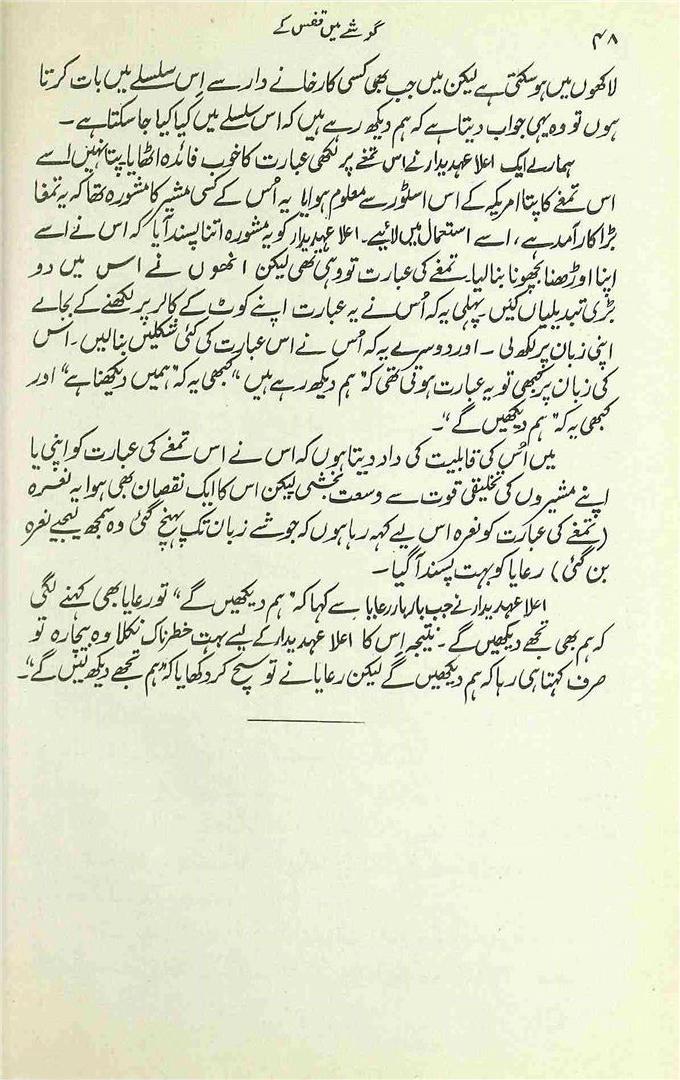 ۴۸
گوشے میں قفس کے
لاکھوں میں ہو سکتی ہے لیکن میں جب بھی کسی کارخانے دار سے اِس سلسلے میں بات کرتا
ہوں تو وہ یہی جواب دیتا ہے کہ ہم دیکھ رہے ہیں کہ اس سلسلے میں کیا کیا جا سکتا ہے ۔
ہمارے ایک اعلا عہدیدار نے اس تمغے پر لکھی عبارت کا خوب فائدہ اٹھایا پتا نہیں اسے
اس تمغے کا پتا امریکہ کے اس اسٹور سے معلوم ہوا یا یہ اُس کے کسی مشیر کا مشورہ تھا کہ یہ تمغا
بڑا کار آمد ہے ، اسے استعمال میں لائیے۔ اعلا عہدیدار کو یہ مشورہ اتنا پسند آیا کہ اس نے اسے
اپنا اوڑھنا بچھونا بنا لیا۔ تمغے کی عبارت تو وہی تھی لیکن انھوں نے اس میں دو
بڑی تبدیلیاں کیں۔ پہلی یہ کہ اُس نے یہ عبارت اپنے کوٹ کے کالر پر لکھنے کے بجائے
اپنی زبان پر لکھ لی ۔ اور دوسرے یہ کہ اُس نے اس عبارت کی کئی شکلیں بنا لیں ۔ اس
کی زبان پر کبھی تو یہ عبارت ہوتی تھی کہ "ہم دیکھ رہے ہیں" کبھی یہ کہ "ہمیں دیکھنا ہے" اور
کبھی یہ کہ "ہم دیکھیں گے"۔
میں اُس کی قابلیت کی داد دیتا ہوں کہ اس نے اس تمغے کی عبارت کو اپنی یا
اپنے مشیروں کی تخلیقی قوت سے وسعت بخشی لیکن اس کا ایک نقصان بھی ہوا یہ نعرہ
(تمغے کی عبارت کو نعرہ اس لیے کہہ رہا ہوں کہ جو شے زبان تک پہنچ گئی وہ سمجھ لیجیے نعرہ
بن گئی) رعایا کو بہت پسند آ گیا ۔
اعلا عہدیدار نے جب بار بار رعایا سے کہا کہ "ہم دیکھیں گے" تو رعایا بھی کہنے لگی
کہ ہم بھی تجھے دیکھیں گے ۔ نتیجہ اِس کا اعلا عہدیدار کے لیے بہت خطرناک نکلا وہ بیچارہ تو
صرف کہتا ہی رہا کہ ہم دیکھیں گے لیکن رعایا نے تو سچ کر دکھایا کہ "ہم تجھے دیکھ لیں گے"۔